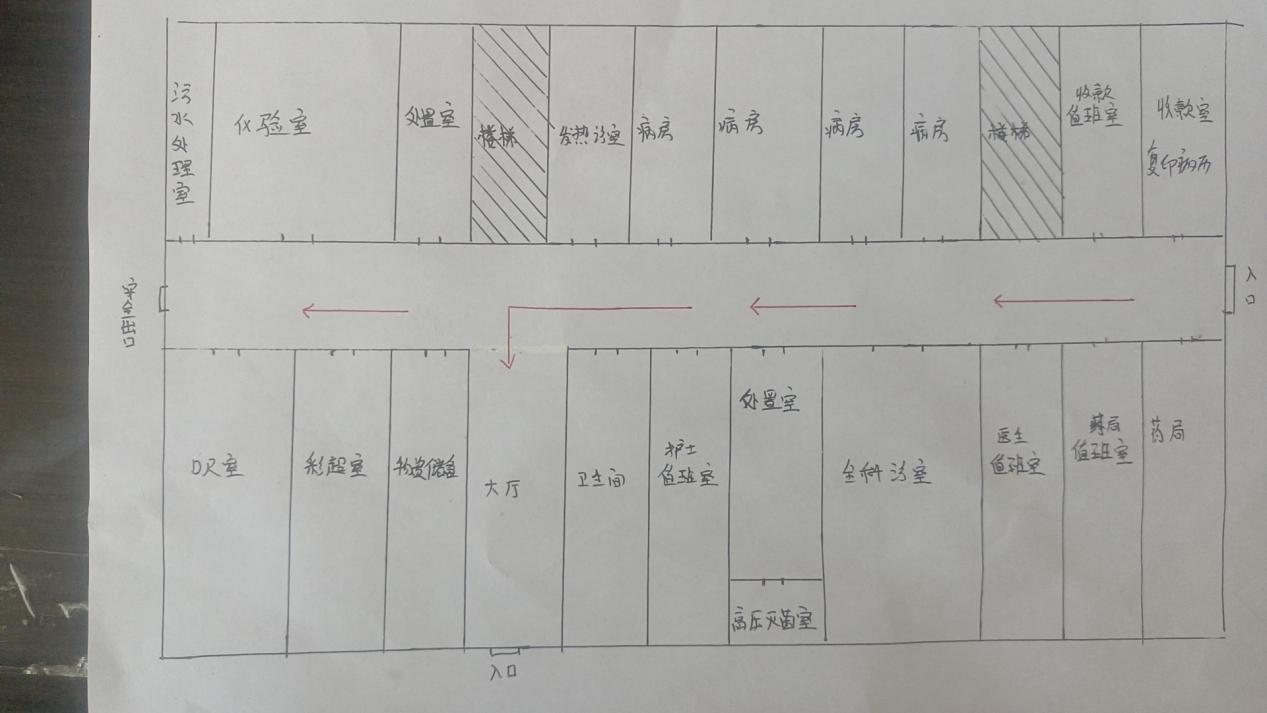 污水处理室
化验室
处置室
楼梯
发热诊室
病房
病房
病房
病房
楼梯
收款
值班室
收款室
复印病历
安全出口
入口
DR室
彩超室
物资储备
大厅
卫生间
护士
值班室
处置室
高压灭菌室
全科诊室
医生
值班室
药局
值班室
药局
入口